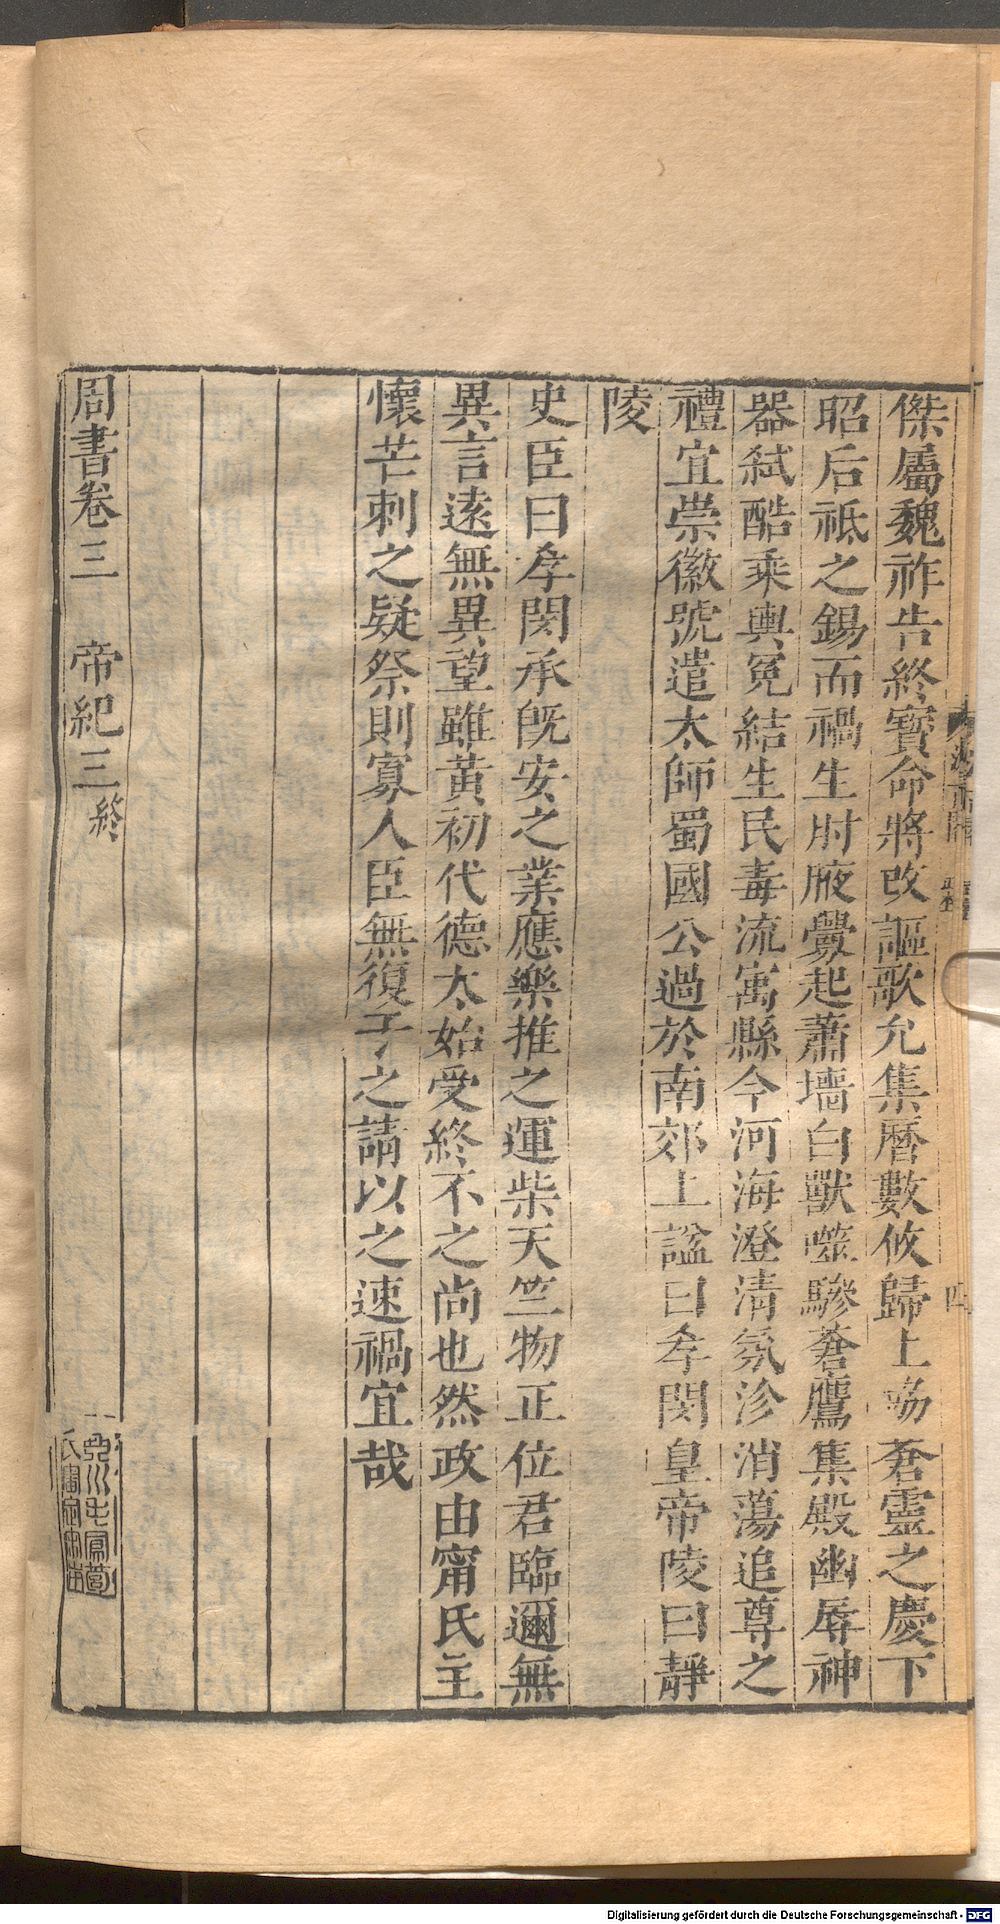 傑屬魏祚告終寶命將改謳歌允集曆數攸歸上協蒼靈之慶下
昭后祗之錫而禍生肘腋釁起蕭墻白獸噬驂蒼鷹集殿幽辱神
器弑酷乘輿冤結生民毒流寓縣今河海澄清氛沴消蕩追尊之
禮宜崇徽號遣太師蜀國公迥於南郊上諡曰孝閔皇帝陵曰靜
陵
史臣曰孝閔承旣安之業應樂推之運柴天竺物正位君臨邇無
異言遠無異望雖黃初代德太始受終不之尚也然政由甯氏主
懷芒刺之疑祭則寡人臣無復子之請以之速禍宜哉
周書卷三 帝紀三終
四
Digitalisierung gefördert durch die Deutsche Forschungsgemeinschaft - DFG